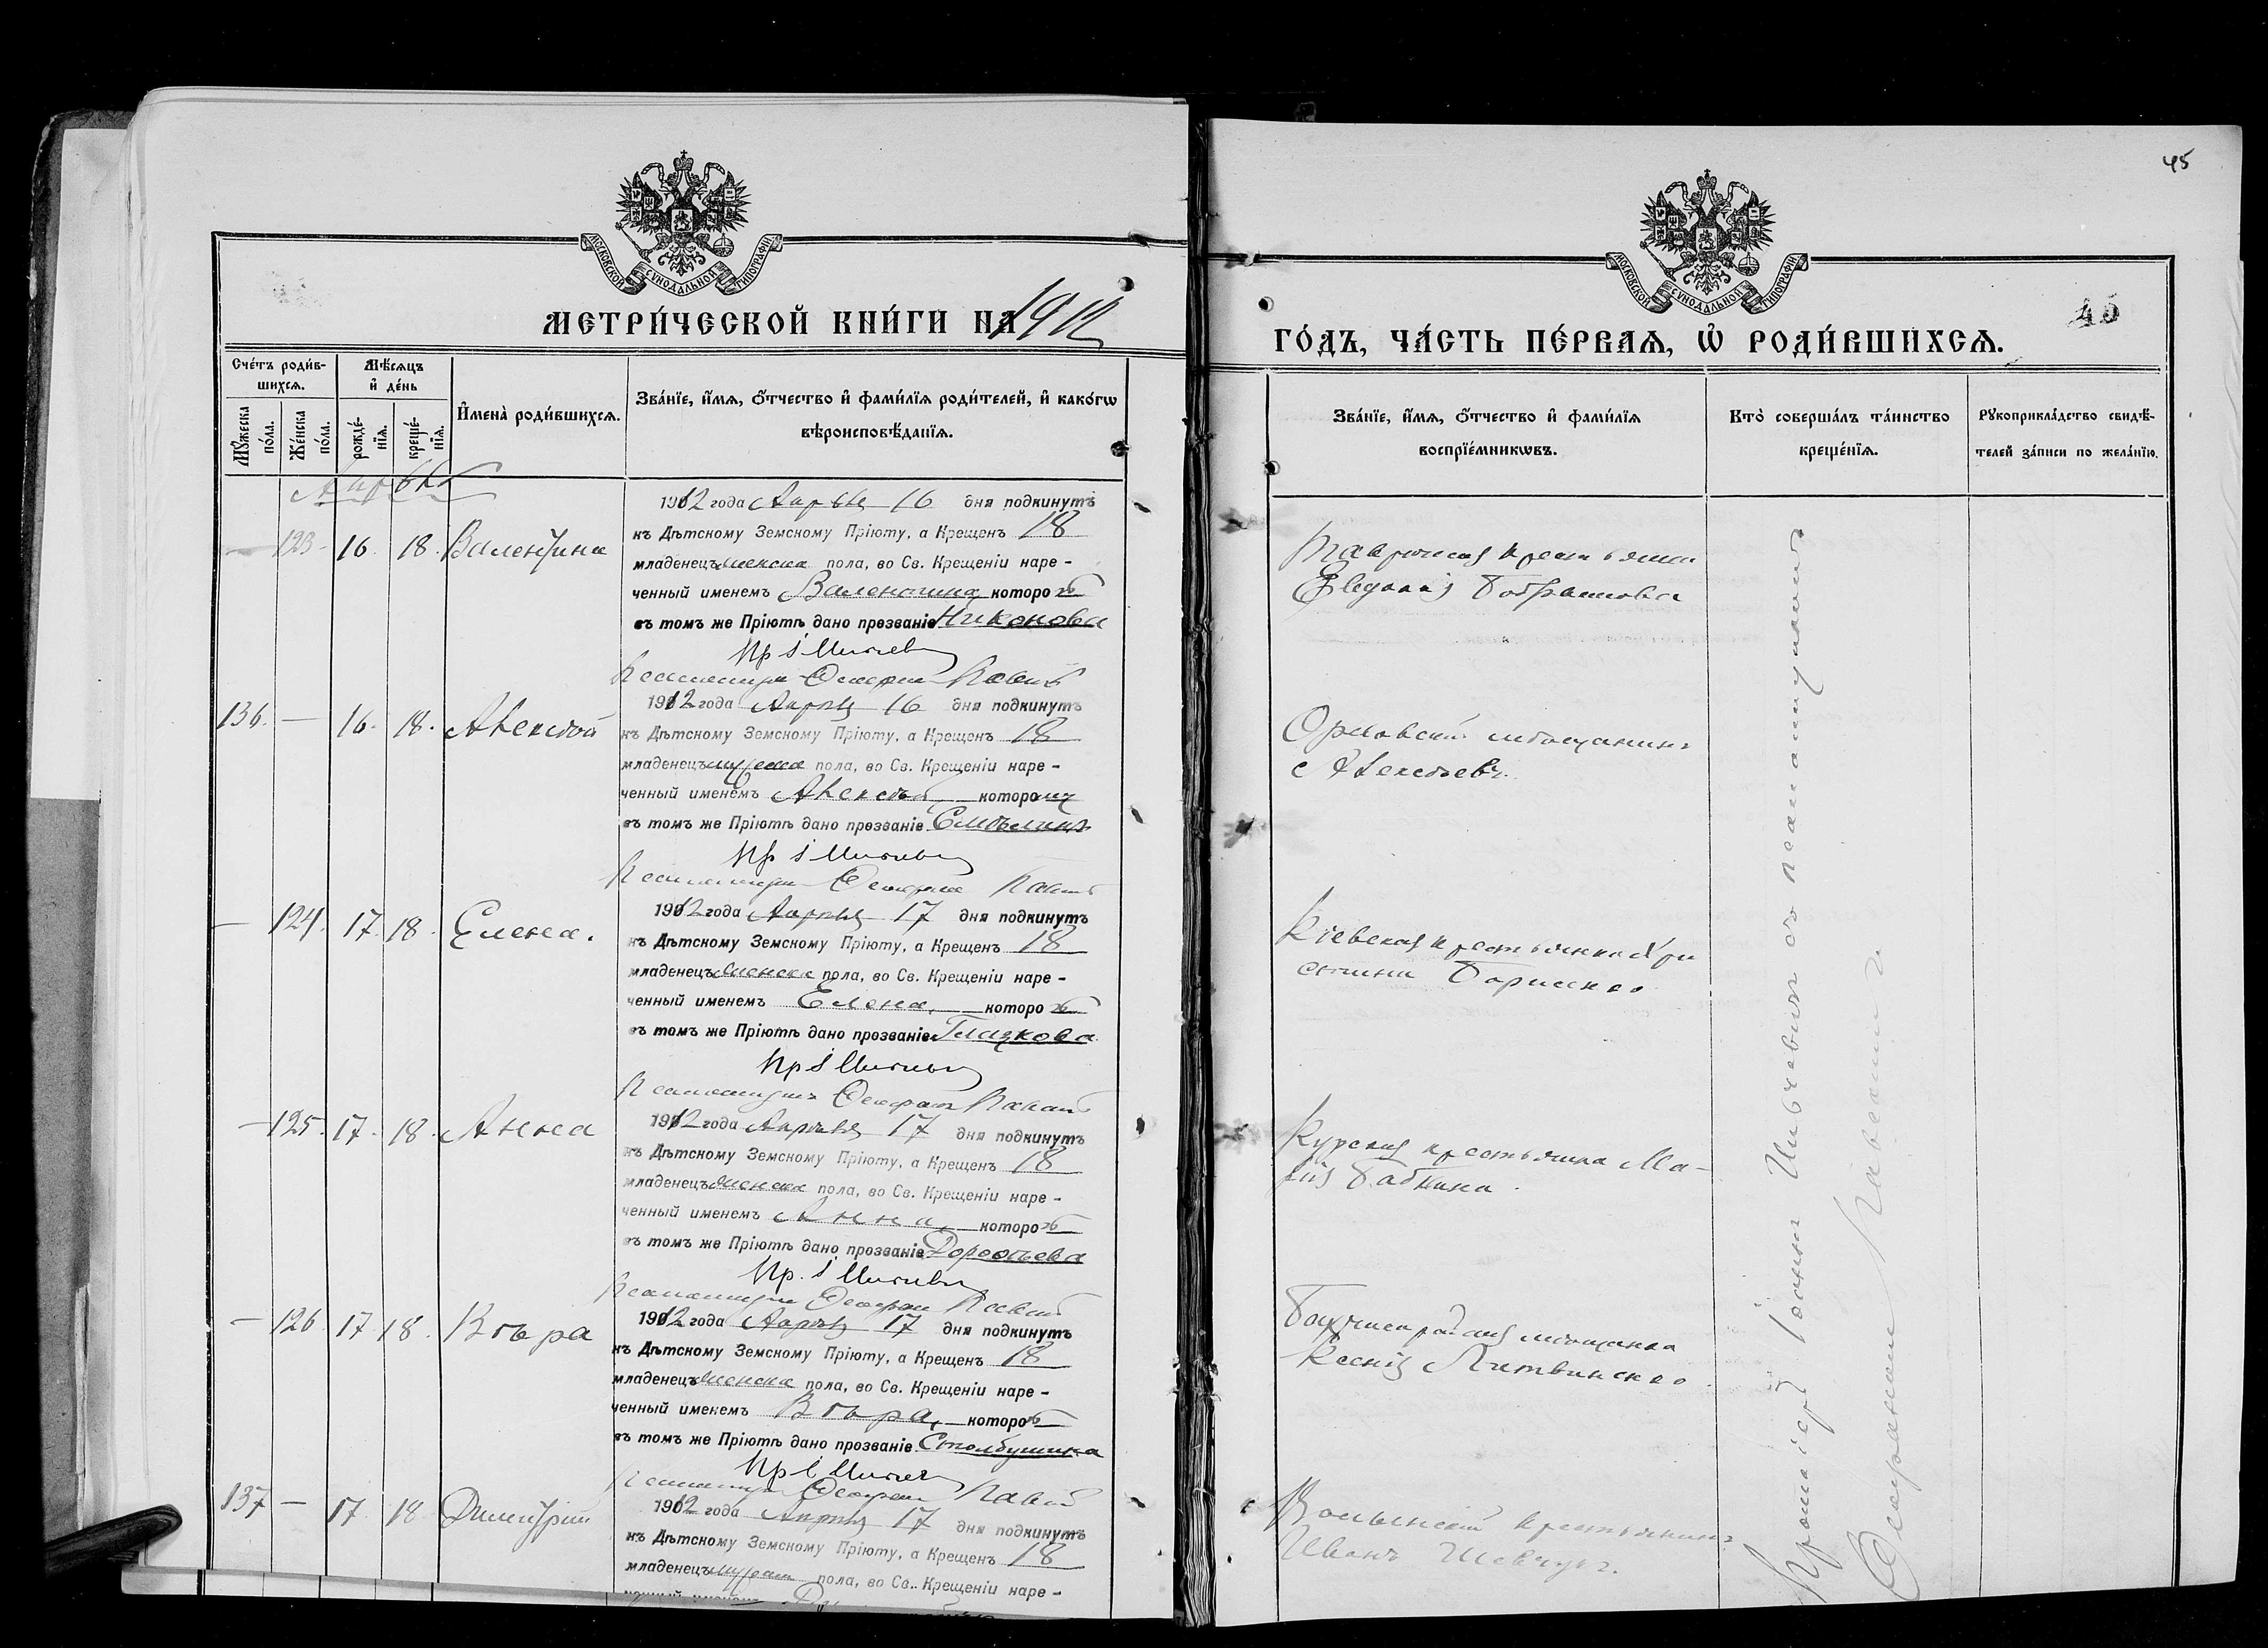 45
МОСКОВСКОЙ СУНОДАЛЬНОЙ ТИПОГРАФІИ
МЕТРИ́ЧЕСКОЙ КНИ́ГИ НА 1912
Сче́тъ роди́в-
шихсѧ.
Мꙋ́жеска
по́ла.
Же́нска
по́ла.
Мѣ́сѧцъ
и҆ де́нь
рожде́-
нїѧ.
креще́-
нїѧ.
И҆мена̀ роди́вшихсѧ.
Зва́нїе, и҆́мѧ, ѻ҆́тчество и҆ фами́лїѧ роди́телей, и҆ како́гѡ
вѣроисповѣ́данїѧ.
Апрѣль
— 123 16. 18. Валентина
1912 года Апрѣля 16 дня подкинутъ
къ Дѣтскому Земскому Пріюту, а Крещенъ 18
младенецъ женска пола, во Св. Крещеніи наре-
ченный именемъ Валентина, которой
въ томъ же Пріютѣ дано прозваніе Никонова
136. — 16. 18. Алексѣй
1912 года Апрѣля 16 дня подкинутъ
къ Дѣтскому Земскому Пріюту, а Крещенъ 18
младенецъ мужеска пола, во Св. Крещеніи наре-
ченный именемъ Алексѣй, которому
въ томъ же Пріютѣ дано прозваніе
— 124. 17. 18. Елена.
1912 года Апрѣля 17 дня подкинутъ
къ Дѣтскому Земскому Пріюту, а Крещенъ 18
младенецъ женска пола, во Св. Крещеніи наре-
ченный именемъ Елена, которой
въ томъ же Пріютѣ дано прозваніе Глазкова
— 125. 17. 18. Анна
1912 года Апрѣля 17 дня подкинутъ
къ Дѣтскому Земскому Пріюту, а Крещенъ 18
младенецъ женска пола, во Св. Крещеніи наре-
ченный именемъ Анна, которой
въ томъ же Пріютѣ дано прозваніе Дорофѣева
— 126 17. 18. Вѣра
1912 года Апрѣля 17 дня подкинутъ
къ Дѣтскому Земскому Пріюту, а Крещенъ 18
младенецъ женска пола, во Св. Крещеніи наре-
ченный именемъ Вѣра, которой
въ томъ же Пріютѣ дано прозваніе Столбушина
137 — 17. 18 Димитрій
1912 года Апрѣля 17 дня подкинутъ
къ Дѣтскому Земскому Пріюту, а Крещенъ 18
младенецъ мужеска пола, во Св. Крещеніи наре-
МОСКОВСКОЙ СУНОДАЛЬНОЙ ТИПОГРАФІИ
45
ГО́ДЪ, ЧА́СТЬ ПЕ́РВАѦ, Ѡ҆ РОДИ́ВШИХСѦ.
Зва́нїе, и҆́мѧ, ѻ҆́тчество и҆ фами́лїѧ
воспрїе́мникѡвъ.
Кто̀ соверша́лъ та́инство
креще́нїѧ.
Рꙋкоприкла́дство свидѣ́-
телей за́писи по жела́нїю.
Евдокія
Орловскій мѣщанинъ
Алексѣевъ.
Кіевская крестьянка Хри
стина Борисенко
Курская крестьянка Ма-
рія Бабкина.
мѣщанка
Ксенія Литвиненко
Волынскій крестьянинъ
Иванъ Шевчукъ.
Протоіерей Іоаннъ съ псаломщикомъ